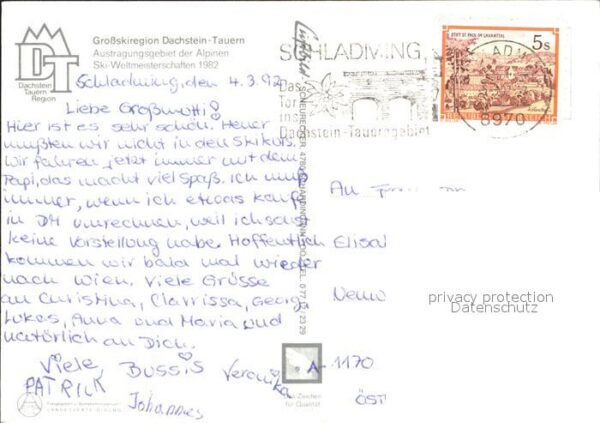 Großskiregion Dachstein-Tauern
Austragungsgebiet der Alpinen
Ski-Weltmeisterschaften 1982
DT
Dachstein
Tauern
Region
Schladming, den 4.3.92
Liebe Großmutti!
Hier ist es sehr schön. Heuer
mußten wir nicht in den Skikurs.
Wir fahren jetzt immer mit dem
Papi, das macht viel Spaß. Ich muß
immer, wenn ich etwas kaufe
in DM umrechnen, weil ich sonst
keine Vorstellung habe. Hoffentlich
kommen wir bald mal wieder
nach Wien. Viele Grüsse
an Christina, Clarrissa, Georg
Lukas, Anna und Maria und
natürlich an Dich.
Viele Bussis Veronika
PATRICK
Johannes
SCHLADMING
Das
Tor
ins
Dachstein-Tauerngebiet
STIFT ST. PAUL IM LAVANTTAL
5s
REPUBLIK ÖSTERREICH
8970
An
Elisa
A-1170
ÖST
Das Zeichen
für Qualität
privacy protection
Datenschutz